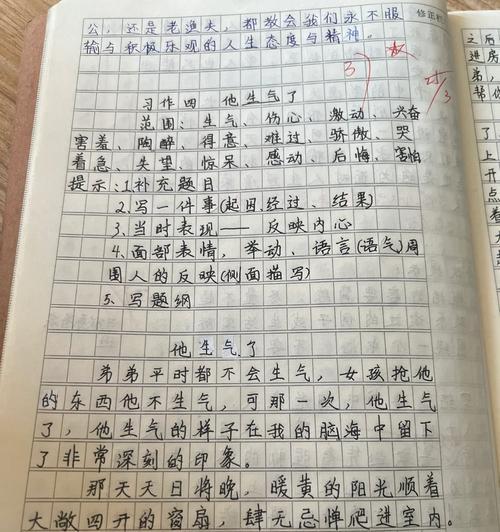 公，还是老渔夫，都教会我们永不服
输与积极乐观的人生态度与精神。
修正栏
习作四 他生气了
范围：生气、伤心、激动、兴奋
害羞、陶醉、得意、难过、骄傲、哭
着急、失望、惊呆、感动、后悔、害怕
提示：1.补充题目
2.写一件事(起因、经过、结果)
3.当时表现——反映内心
4.面部表情，举动、语言(语气)周
围人的反映(侧面描写)
5.写题纲
他生气了
弟弟平时都不会生气，女孩抢他
的东西他不生气，可那一次，他生气
了，他生气的样子在我的脑海中留下
了非常深刻的印象。
那天天日将晚，暖黄的阳光顺着
大敞四开的窗扇，肆无忌惮爬进室内。
之后
进房
多，
帮你